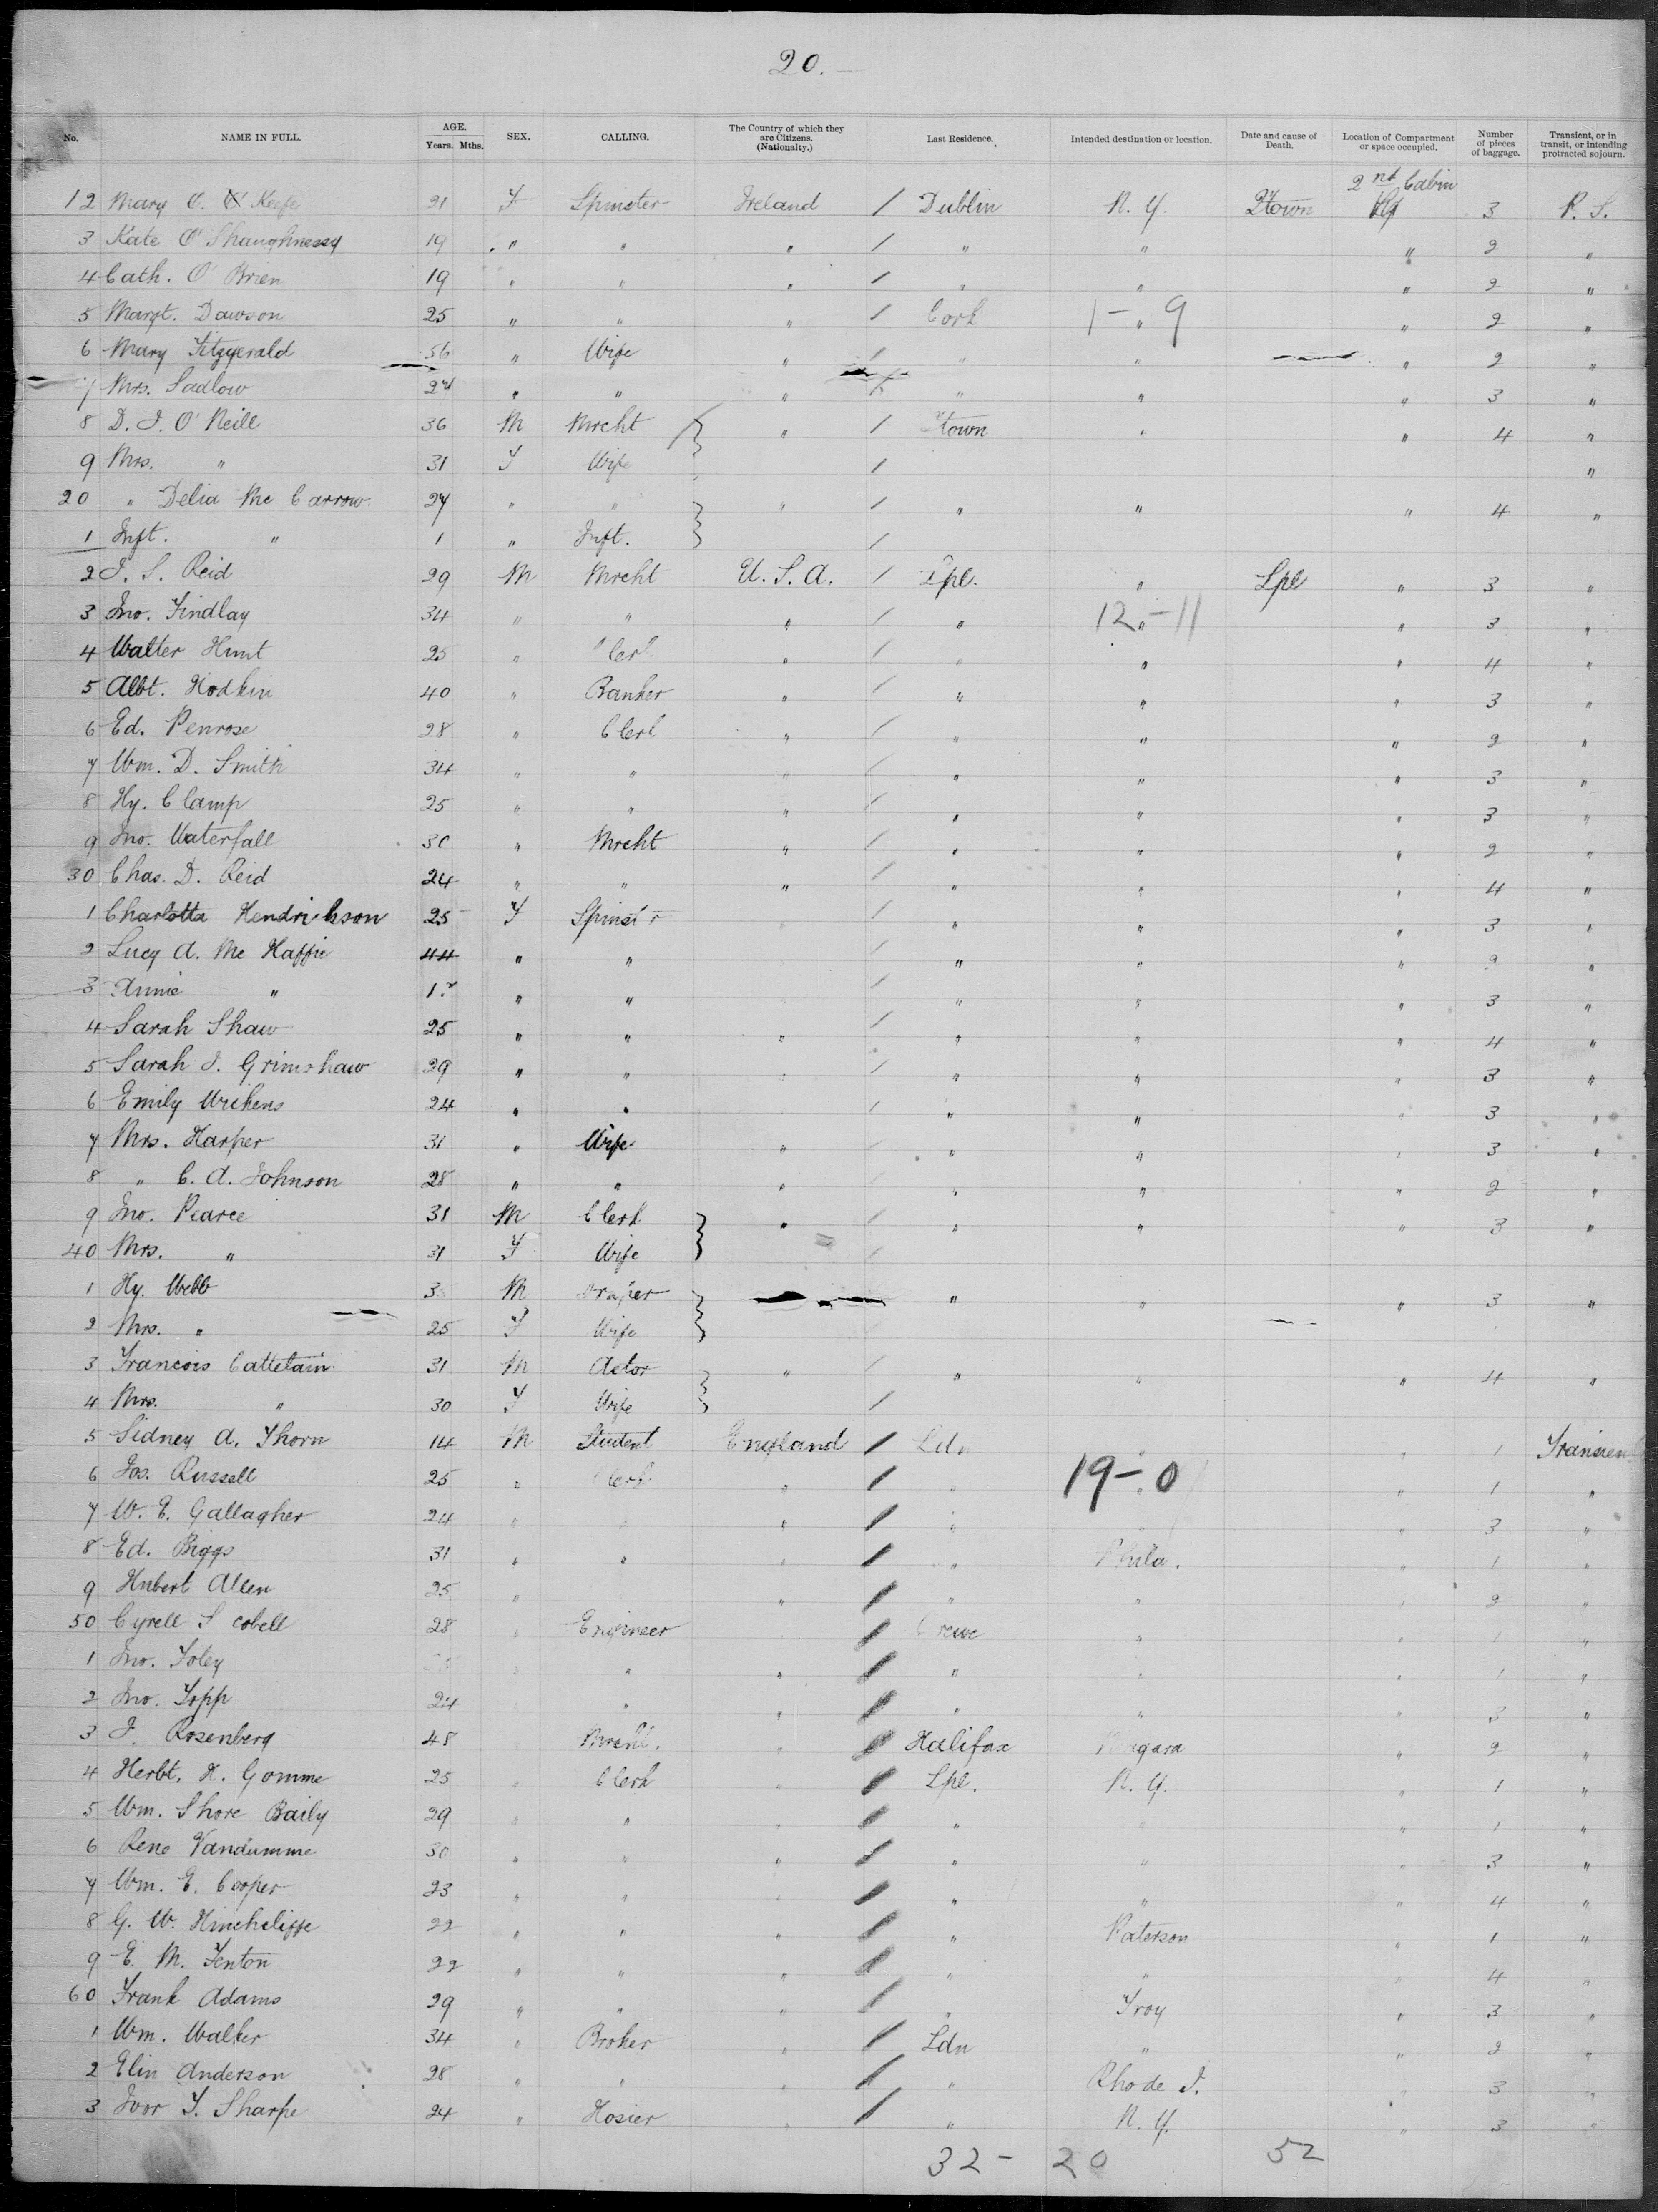 20.
No. NAME IN FULL. AGE. Years. Mths. SEX. CALLING. The Country of which they are Citizens. (Nationality.) Last Residence. Intended destination or location. Date and cause of Death. Location of Compartment or space occupied. Number of pieces of baggage. Transient, or in transit, or intending protracted sojourn.
2nd Cabin
12 Mary O. Keefe 21 F Spinster Ireland / Dublin N. Y. Qtown 3 P. S.
3 Kate O'Shaughnessy 19 " " " / " " " 2 "
4 Cath. O'Brien 19 " " " / " " " 2 "
5 Margt. Dawson 25 " " " / Cork 1 - " 9 " 2 "
6 Mary Fitzgerald 56 " Wife " / " " " 2 "
7 Mrs. Sadlow " " " / " " " 3 "
8 D. J. O'Neill 36 M Mrcht " / Qtown " " 4 "
9 Mrs. " 31 F Wife / "
20 " Delia McCarrow 27 " " " / " " " 4 "
1 Inft. " 1 " Inft. /
2 J. S. Reid 29 M Mrcht U. S. A. / Lpl. " Lpl " 3 "
3 Jno. Findlay 34 " " " / " 12 " - 11 " 3 "
4 Walter Hunt 25 " Clerk " / " " " 4 "
5 Albt. Hodkin 40 " Banker " / " " " 3 "
6 Ed. Penrose 28 " Clerk " / " " " 2 "
7 Wm. D. Smith 34 " " " / " " " 3 "
8 Hy. Clamp 25 " " " / " " " 3 "
9 Jno. Waterfall 30 " Mrcht " / " " " 2 "
30 Chas. D. Reid 24 " " " / " " " 4 "
1 Charlotta Hendrikson 25 F Spinster / " " " 3 "
2 Lucy A. McHaffie 44 " " / " " " 2 "
3 Annie " " " / " " " 3 "
4 Sarah Shaw 25 " " " / " " " 4 "
5 Sarah J. Grimshaw 29 " " / " " " 3 "
6 Emily Wickens 24 " " / " " " 3 "
7 Mrs. Harper 31 " Wife " / " " " 3 "
8 " C. A. Johnson 28 " " " / " " " 2 "
9 Jno. Pearce 31 M Clerk " / " " " 3 "
40 Mrs. " 31 F Wife /
1 Hy. Webb M Draper " " " 3 "
2 Mrs. " 25 F Wife
3 Francois Cattetain 31 M Actor " / " " " 4 "
4 Mrs. " 30 F Wife /
5 Sidney A. Thorn 14 M Student England / Ldn " " 1 Transient
6 Jos. Russell 25 " Clerk " / " 19 - " 0 " 1 "
7 W. E. Gallagher 24 " " " / " " " 3 "
8 Ed. Biggs 31 " " " / " Phila. " 1 "
9 Hubert Allen 25 " " / " " " 2 "
50 Cyrell Scobell 28 " Engineer / Crewe " " 1 "
1 Jno. Foley " " " / " " " 1 "
2 Jno. Topp 24 " " / " " " 3 "
3 J. Rosenberg 48 Mrcht. " / Halifax Niagara " 2 "
4 Herbt. H. Gomme 25 " Clerk " / Lpl. N. Y. " 1 "
5 Wm. Shore Baily 29 " " " / " " " 1 "
6 Rene Vandumme 30 " " " / " " " 3 "
7 Wm. E. Cooper 23 " " " / " " " 4 "
8 G. W. Hinchcliffe 22 " " " / " Paterson " 1 "
9 E. M. Fenton 22 " " " / " " " 4 "
60 Frank Adams 29 " " " / " Troy " 3 "
1 Wm. Walker 34 " Broker " / Ldn " " 2 "
2 Elin Anderson 28 " " " / " Rhode I. " 3 "
3 Ivor T. Sharpe 24 " Hosier " / " N. Y. " 3 "
32 - 20 52